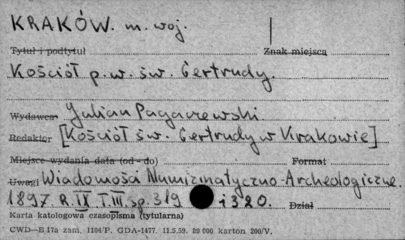 KRAKÓW. m. woj.
Tytuł i podtytuł Znak miejsca
Kościół p.w. św. Gertrudy.
Wydawca Julian Pagaczewski
Redaktor [Kościół św. Gertrudy w Krakowie]
Miejsce wydania data (od - do) Format
Uwagi Wiadomości Numizmatyczno-Archeologiczne.
1897. R. IX T. III. sp. 319 i 320. Dział
Karta katalogowa czasopisma (tytularna)
CWD—B 17a zam. 1104/P. GDA-1477. 11.5.59. 20 000 karton 200/V.